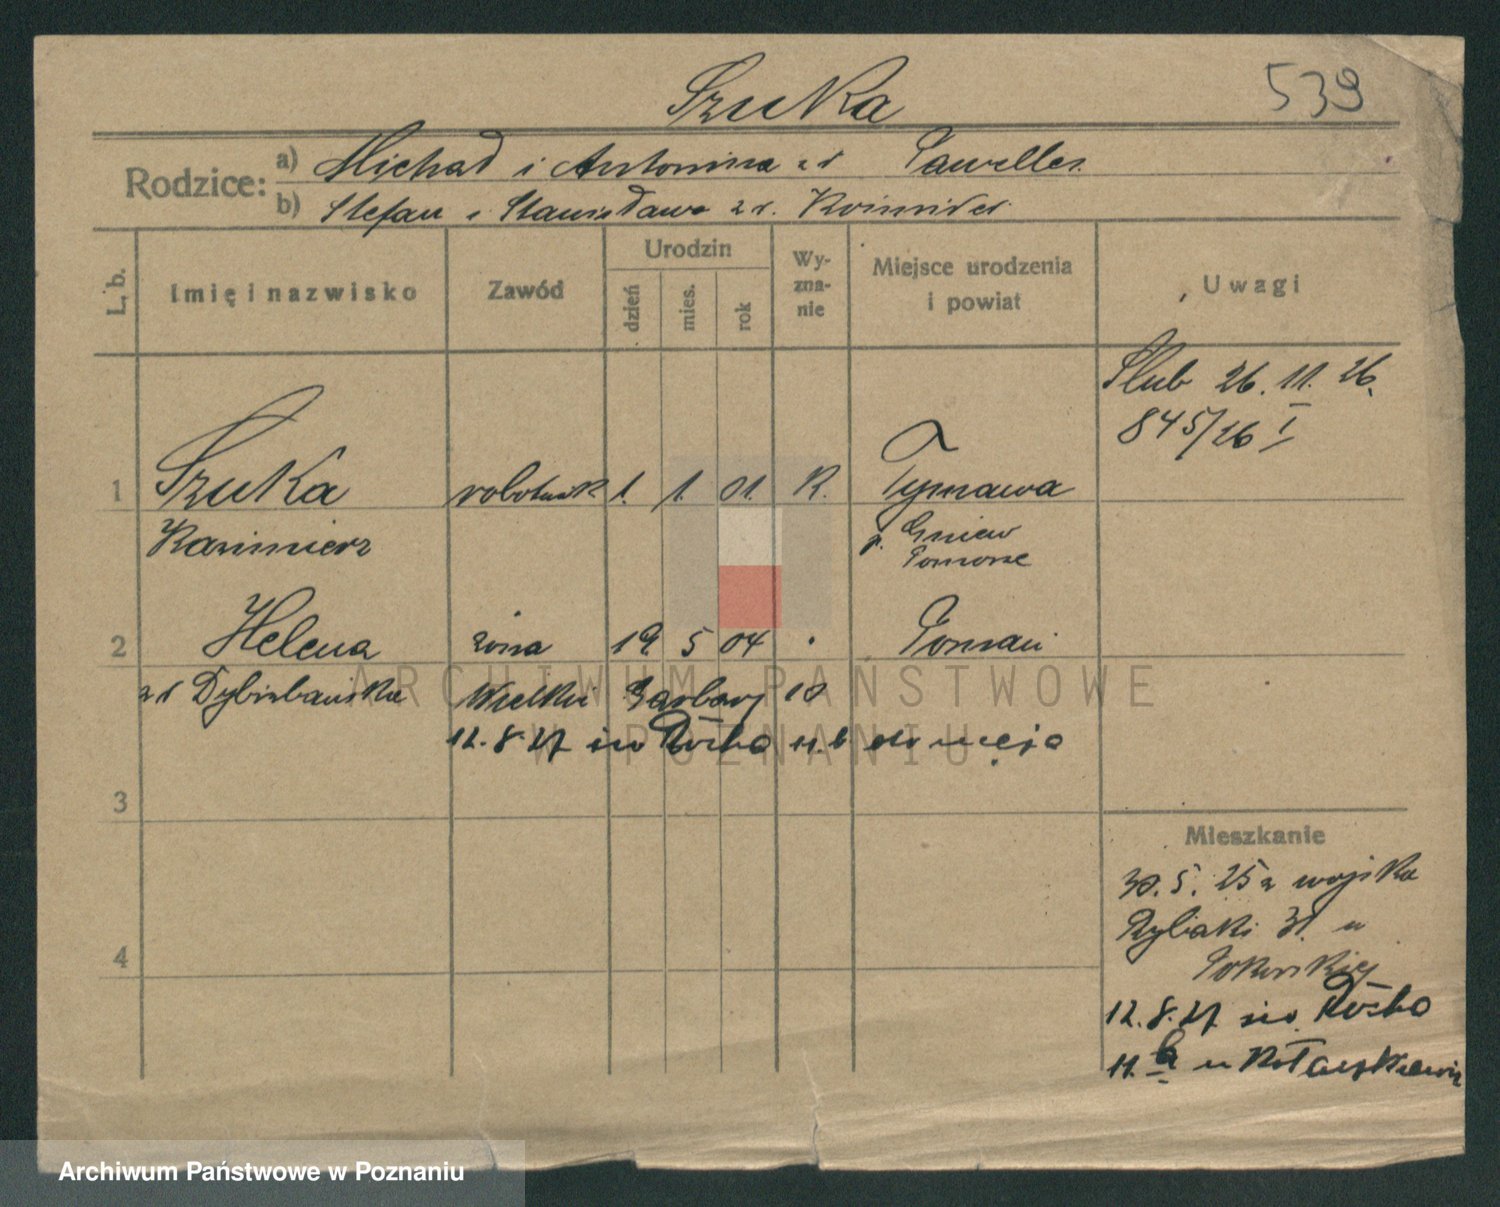 Szuka
539
Rodzice:
a) Michał i Antonina zd
b) Stefan i Stanisława zd.
L. b.
Imię i nazwisko
Zawód
Urodzin
dzień
mies.
rok
Wy-
zna-
nie
Miejsce urodzenia
i powiat
Uwagi
Ślub 26. 11. 26.
845/26 I
1 Szuka robotnik 1. 1. 01. R. Tymawa
Kazimierz p. Gniew
Pomorze
2 Helena żona 19. 5 04 Poznań
zd Dybizbańska Wielkie Garbary 10
12.8.27 św Rocha 11.b do męża
3
4
Mieszkanie
30. 5. 25 z wojska
Rybaki 31. u
12.8.27 św. Rocha
11. b u
ARCHIWUM PAŃSTWOWE
W POZNANIU
Archiwum Państwowe w Poznaniu